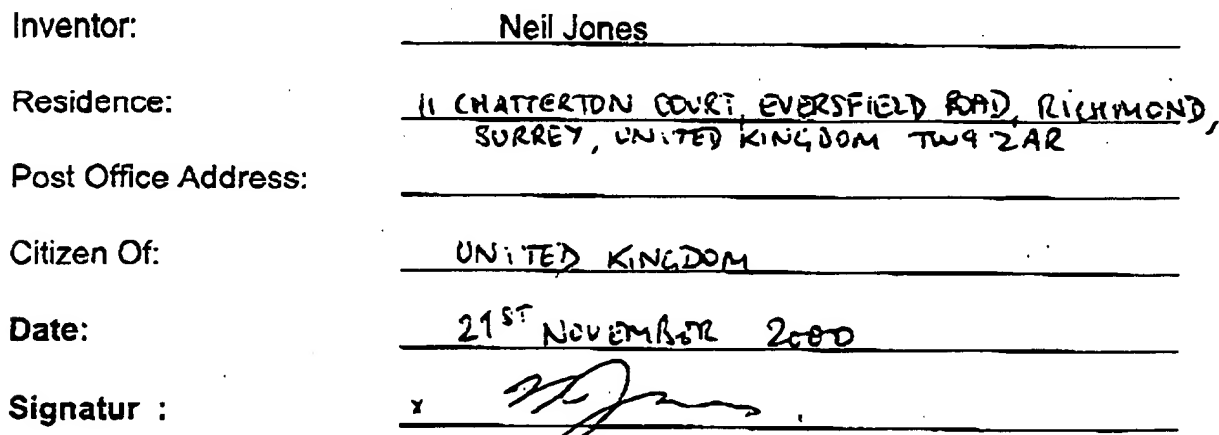 Inventor: Neil Jones
Residence: 11 CHATTERTON COURT, EVERSFIELD ROAD, RICHMOND,
SURREY, UNITED KINGDOM TW9 2AR
Post Office Address:
Citizen Of: UNITED KINGDOM
Date: 21ST NOVEMBER 2000
Signatur : x N Jones